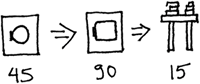 45 90 15